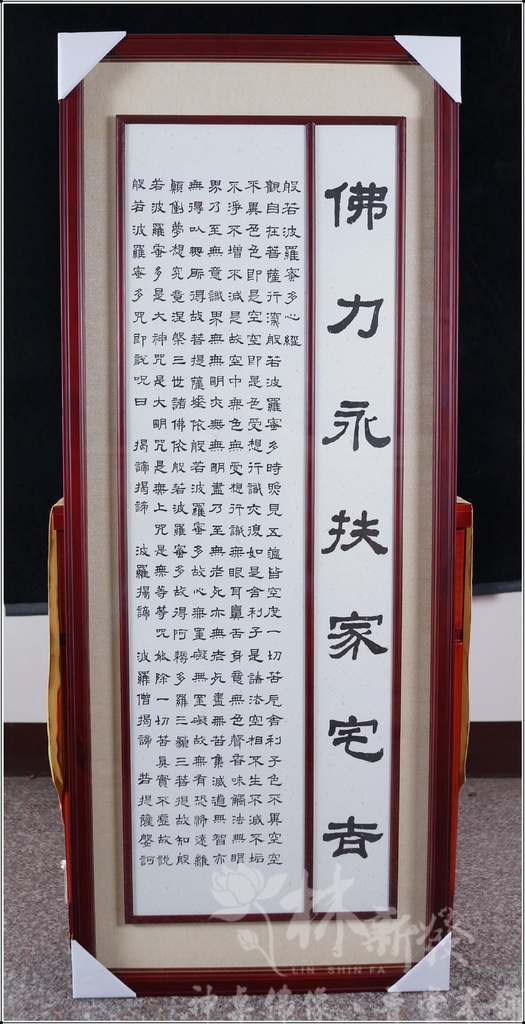 佛力永扶家宅吉
般若波羅蜜多心經
觀自在菩薩行深般若波羅蜜多時照見五蘊皆空度一切苦厄舍利子色不異空空
不異色色即是空空即是色受想行識亦復如是舍利子是諸法空相不生不滅不垢
不淨不增不減是故空中無色無受想行識無眼耳鼻舌身意無色聲香味觸法無眼
界乃至無意識界無無明亦無無明盡乃至無老死亦無老死盡無苦集滅道無智亦
無得以無所得故菩提薩埵依般若波羅蜜多故心無罣礙無罣礙故無有恐怖遠離
顛倒夢想究竟涅槃三世諸佛依般若波羅蜜多故得阿耨多羅三藐三菩提故知般
若波羅蜜多是大神咒是大明咒是無上咒是無等等咒能除一切苦真實不虛故說
般若波羅蜜多咒即說呪曰 揭諦揭諦 波羅揭諦 波羅僧揭諦 菩提薩婆訶
林新發
LIN SHIN FA
神桌佛像